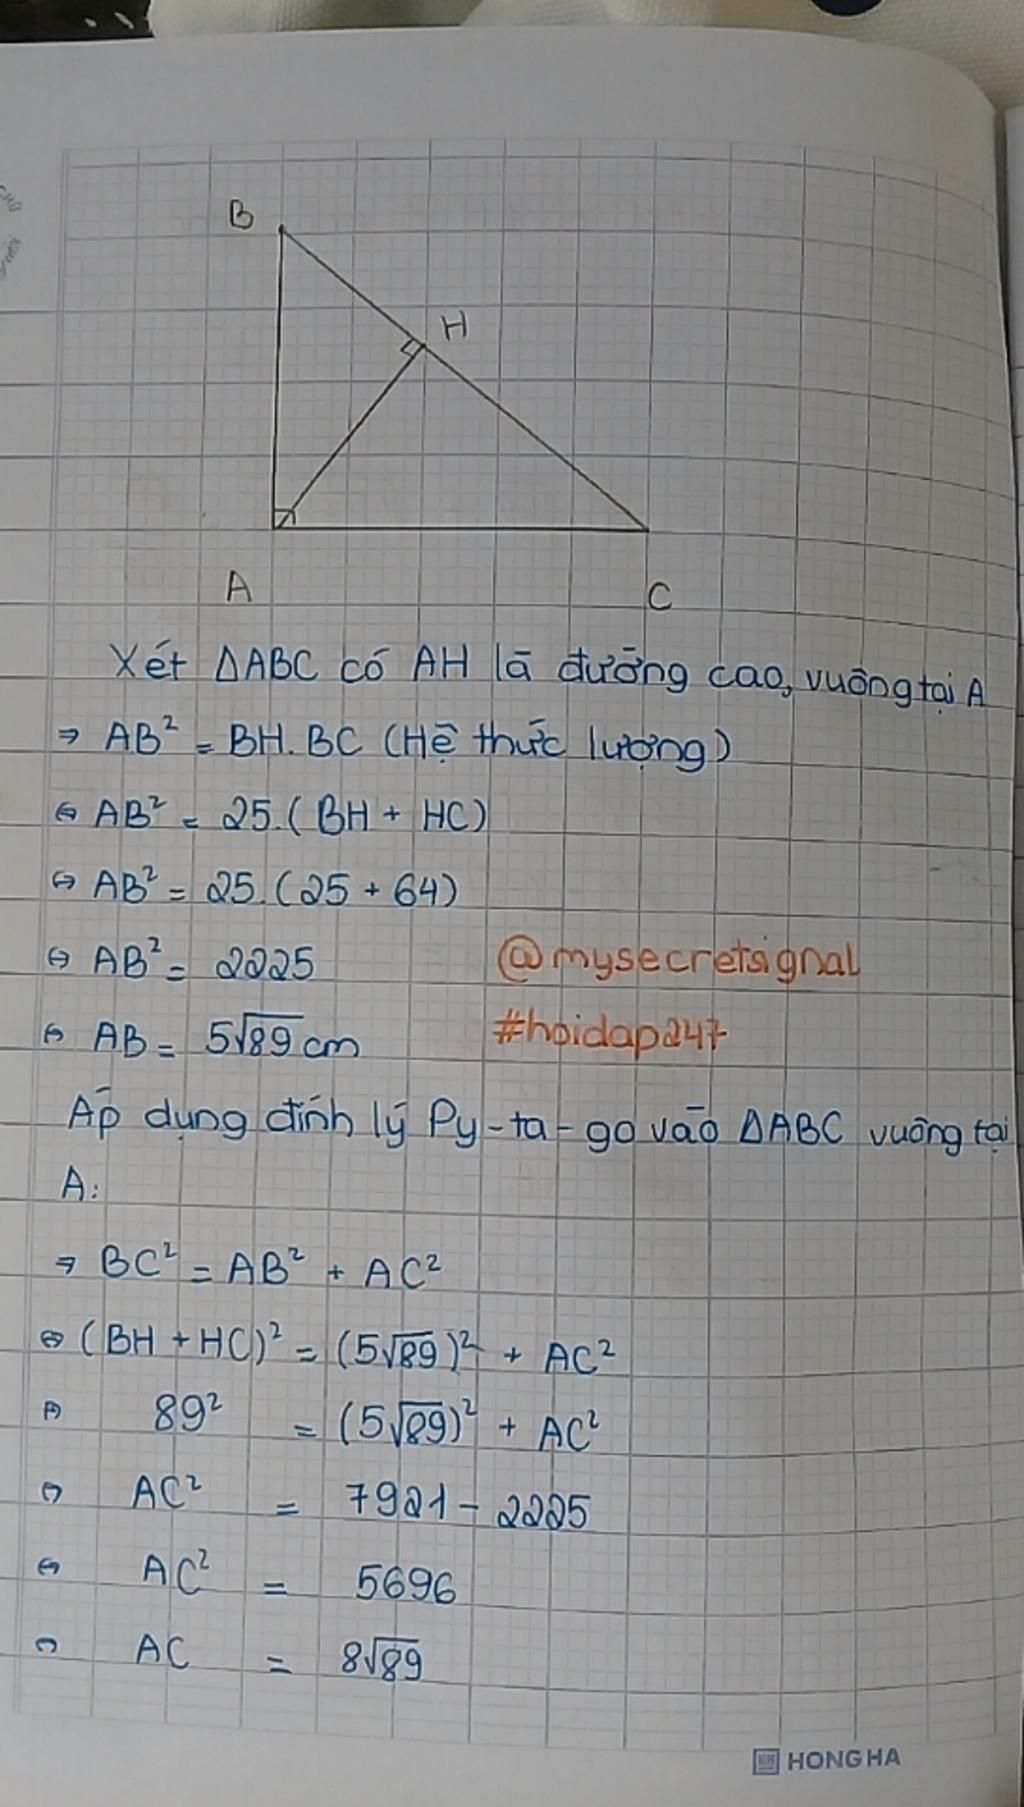 B
H
A
C
Xét ΔABC có AH là đường cao, vuông tại A
⇒ AB² = BH.BC (Hệ thức lượng)
⇔ AB² = 25.(BH + HC)
⇔ AB² = 25.(25 + 64)
⇔ AB² = 2225
@mysecretsignal
⇔ AB = 5√89 cm
#hoidap247
Áp dụng định lý Py-ta-go vào ΔABC vuông tại
A:
⇒ BC² = AB² + AC²
⇔ (BH + HC)² = (5√89)² + AC²
⇔ 89² = (5√89)² + AC²
⇔ AC² = 7921 - 2225
⇔ AC² = 5696
⇔ AC = 8√89
HONG HA